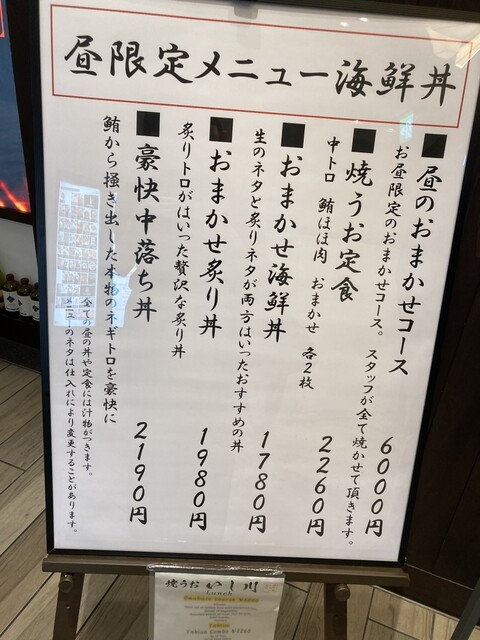 昼限定メニュー海鮮丼
■昼のおまかせコース 6000円
お昼限定のおまかせコース。スタッフが全て焼かせて頂きます。
■焼うお定食 2260円
中トロ 鮪ほほ肉 おまかせ 各2枚
■おまかせ海鮮丼 1780円
生のネタと炙りネタが両方はいったおすすめの丼
■おまかせ炙り丼 1980円
炙りトロがはいった贅沢な炙り丼
■豪快中落ち丼 2190円
鮪から掻き出した本物のネギトロを豪快に
全ての昼の丼や定食には汁物がつきます。
メニューのネタは仕入れにより変更することがあります。
焼うお いし川
Lunch